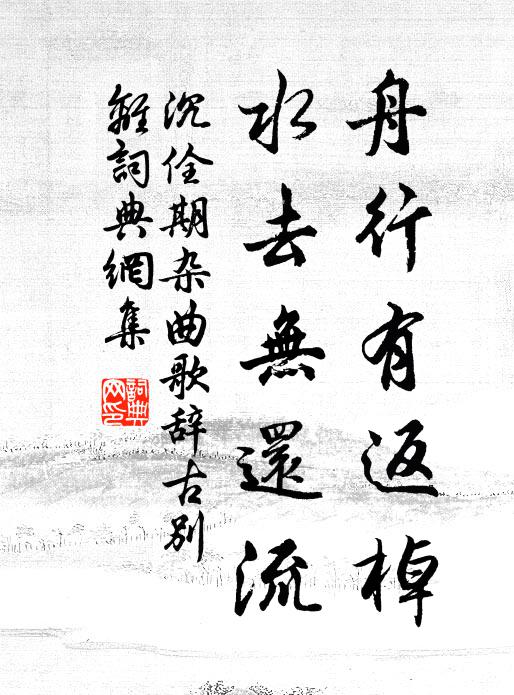 舟行有返棹
水去無還流
沉佺期杂曲歌辞古别
離詞典網集
詞典网印